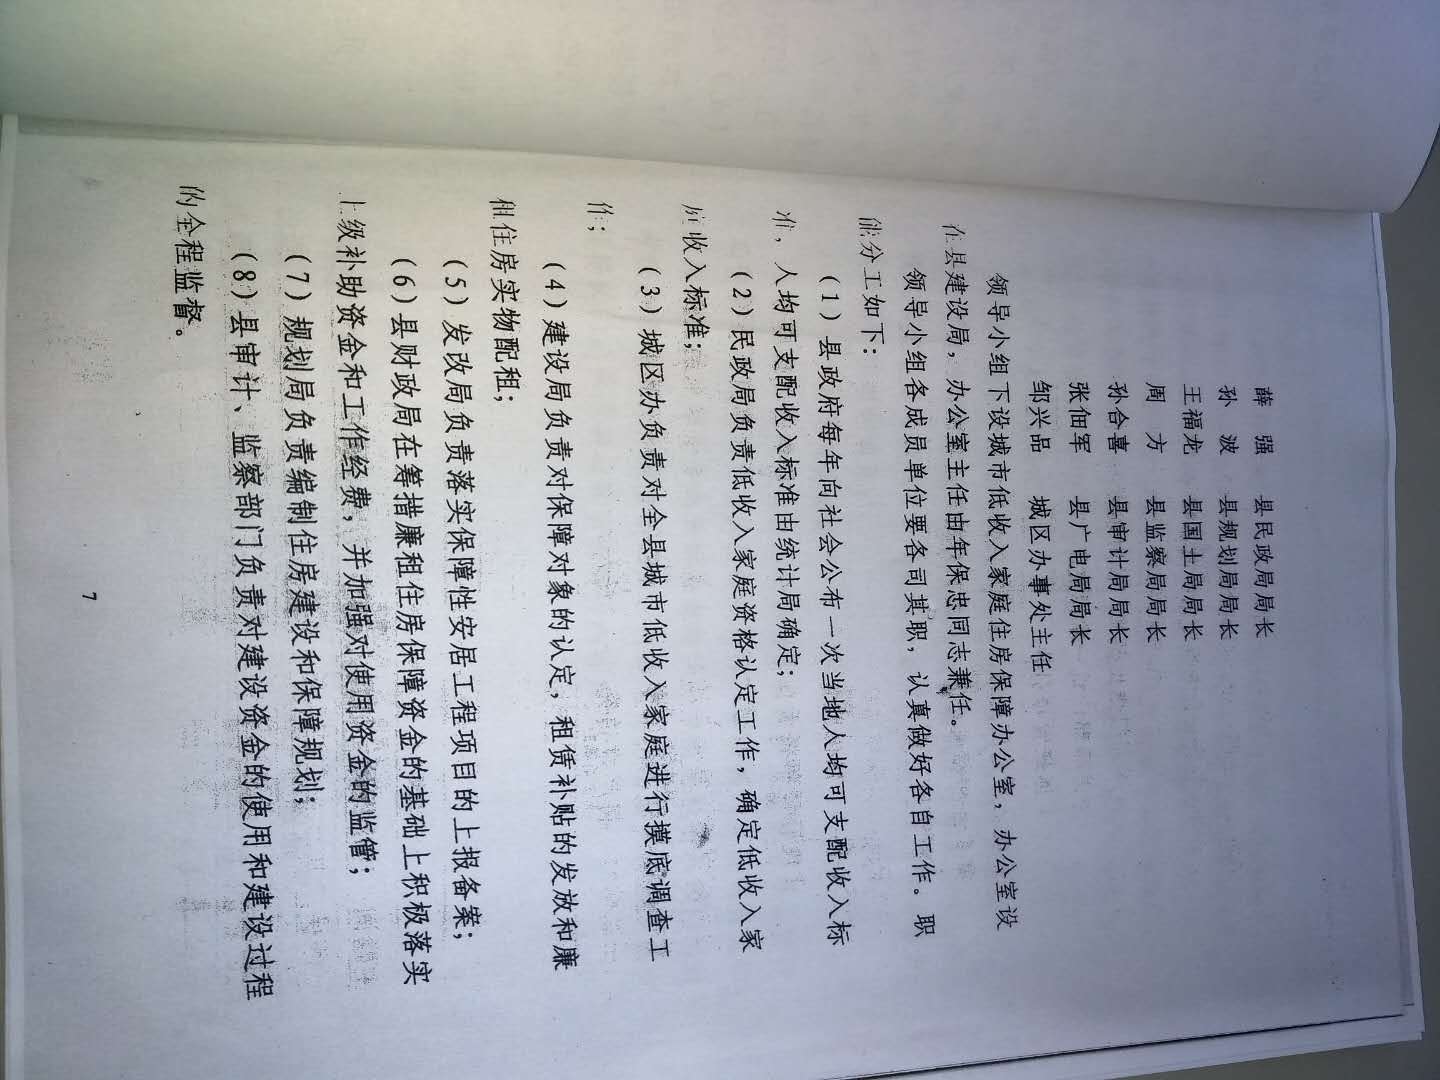 薛 强 县民政局局长
孙 波 县规划局局长
王福龙 县国土局局长
周 方 县监察局局长
孙合喜 县审计局局长
张佃军 县广电局局长
邹兴品 城区办事处主任
领导小组下设城市低收入家庭住房保障办公室，办公室设
在县建设局，办公室主任由年保忠同志兼任。
领导小组各成员单位要各司其职，认真做好各自工作。职
能分工如下：
（1）县政府每年向社会公布一次当地人均可支配收入标
准，人均可支配收入标准由统计局确定；
（2）民政局负责低收入家庭资格认定工作，确定低收入家
庭收入标准；
（3）城区办负责对全县城市低收入家庭进行摸底调查工
作；
（4）建设局负责对保障对象的认定，租赁补贴的发放和廉
租住房实物配租；
（5）发改局负责落实保障性安居工程项目的上报备案；
（6）县财政局在筹措廉租住房保障资金的基础上积极落实
上级补助资金和工作经费，并加强对使用资金的监管；
（7）规划局负责编制住房建设和保障规划；
（8）县审计、监察部门负责对建设资金的使用和建设过程
的全程监督。
7